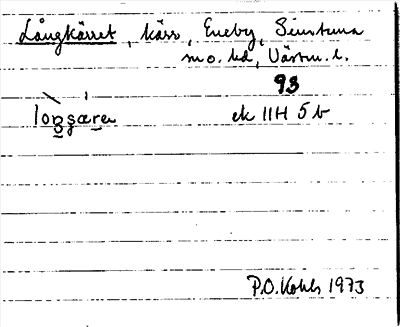 Långkärret, kärr, Eneby, Simtuna
m o. hd, Västm. l.
93
loŋsæ̱re̱n
ek 11H 5b
P.O. Kohls 1973